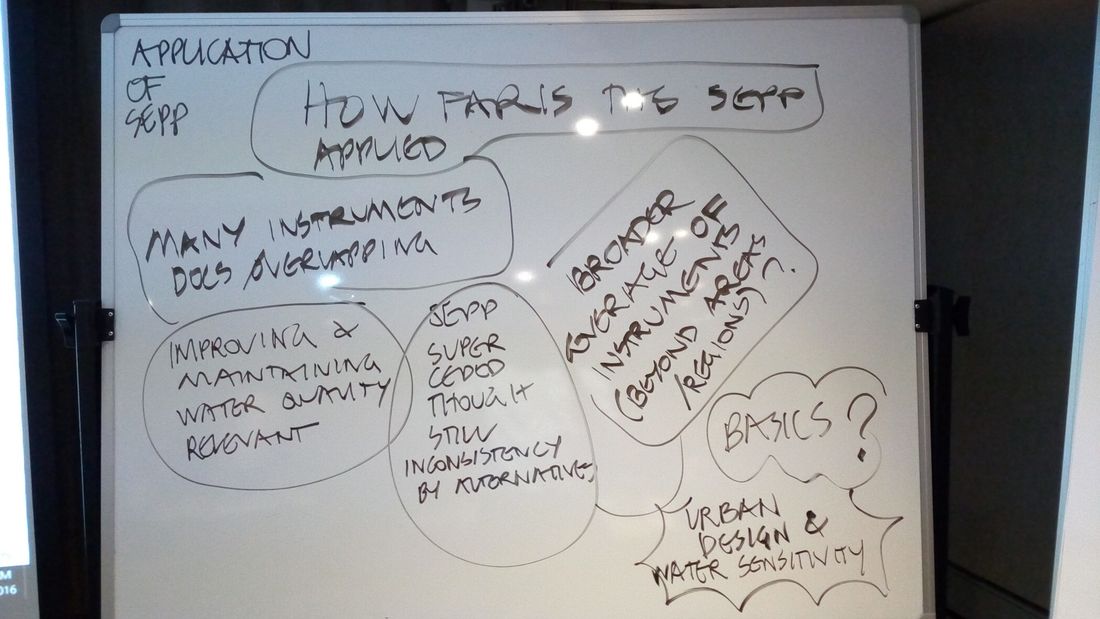 APPLICATION
OF
SEPP
HOW FAR IS THE SEPP
APPLIED
MANY INSTRUMENTS
DOCS OVERLAPPING
IMPROVING &
MAINTAINING
WATER QUALITY
RELEVANT
SEPP
SUPER
CEDED
THOUGHT
STILL
INCONSISTENCY
BY ALTERNATIVES
BROADER
COVERAGE OF
INSTRUMENTS
(BEYOND AREAS
/REGIONS)?
BASICS?
URBAN
DESIGN &
WATER SENSITIVITY
M
016